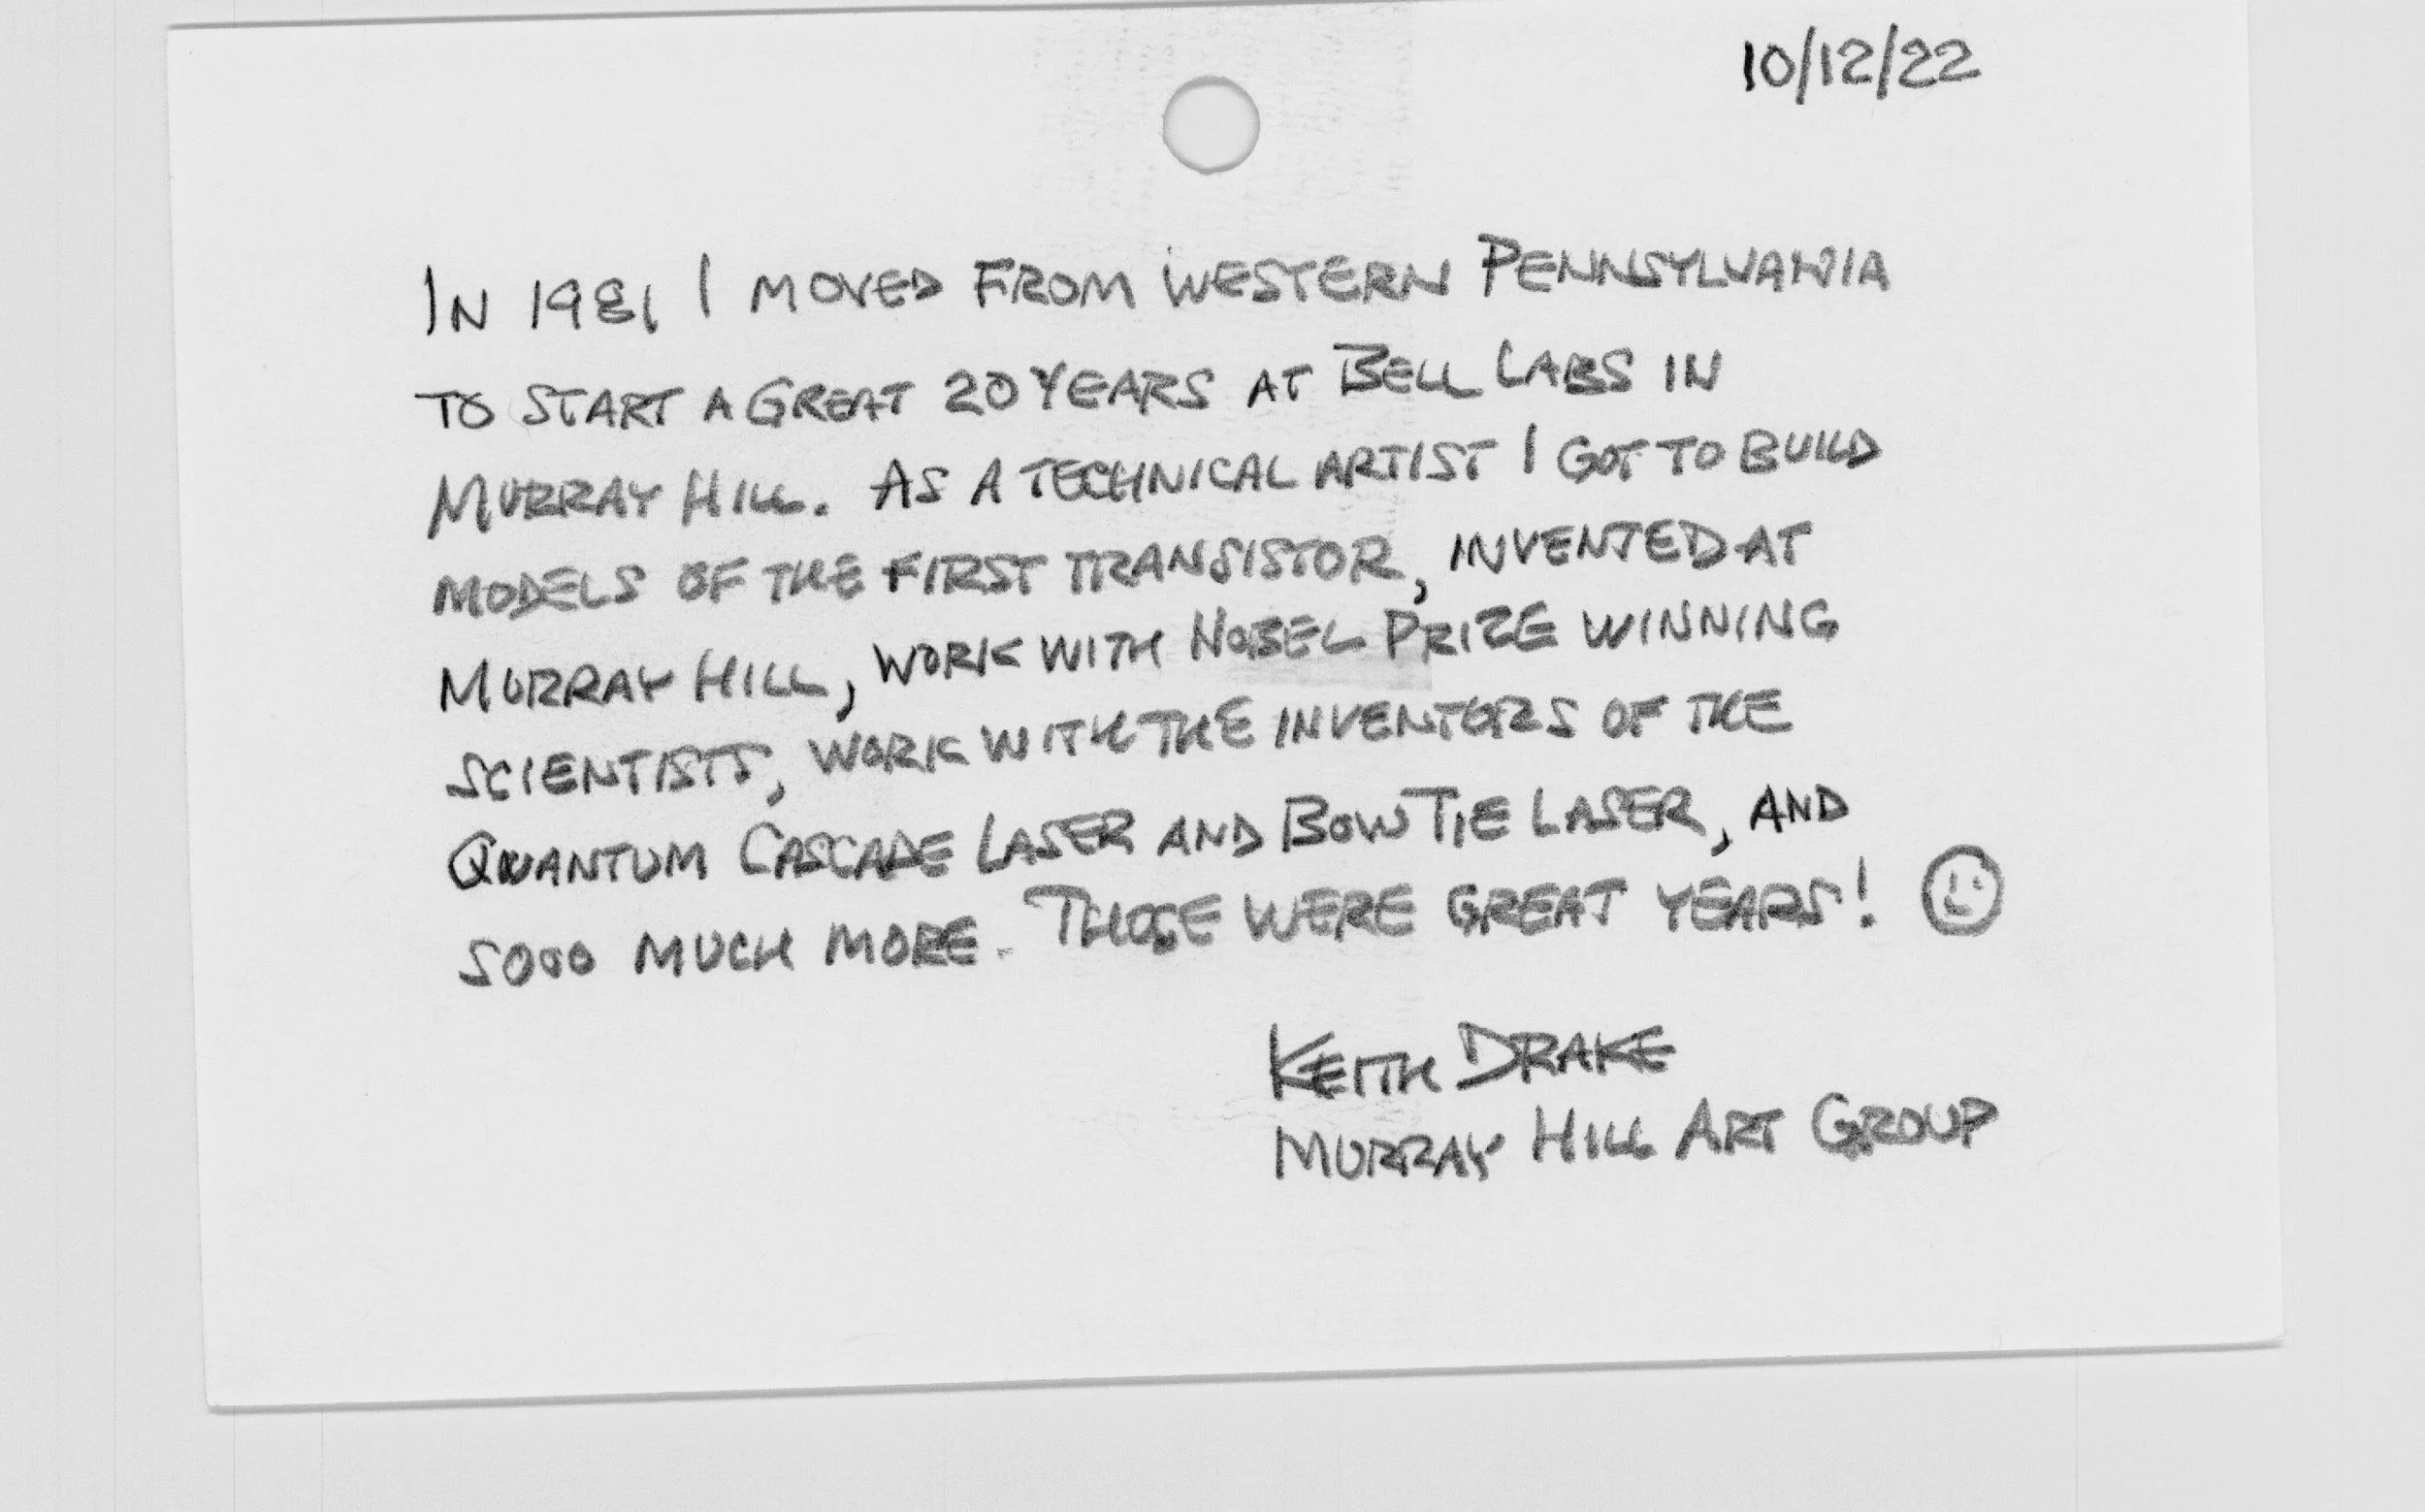 10/12/22
IN 1981 I MOVED FROM WESTERN PENNSYLVANIA
TO START A GREAT 20 YEARS AT BELL LABS IN
MURRAY HILL. AS A TECHNICAL ARTIST I GOT TO BUILD
MODELS OF THE FIRST TRANSISTOR, INVENTED AT
MURRAY HILL, WORK WITH NOBEL PRIZE WINNING
SCIENTISTS, WORK WITH THE INVENTORS OF THE
QUANTUM CASCADE LASER AND BOW TIE LASER, AND
SOOO MUCH MORE. THOSE WERE GREAT YEARS! ☺
KEITH DRAKE
MURRAY HILL ART GROUP